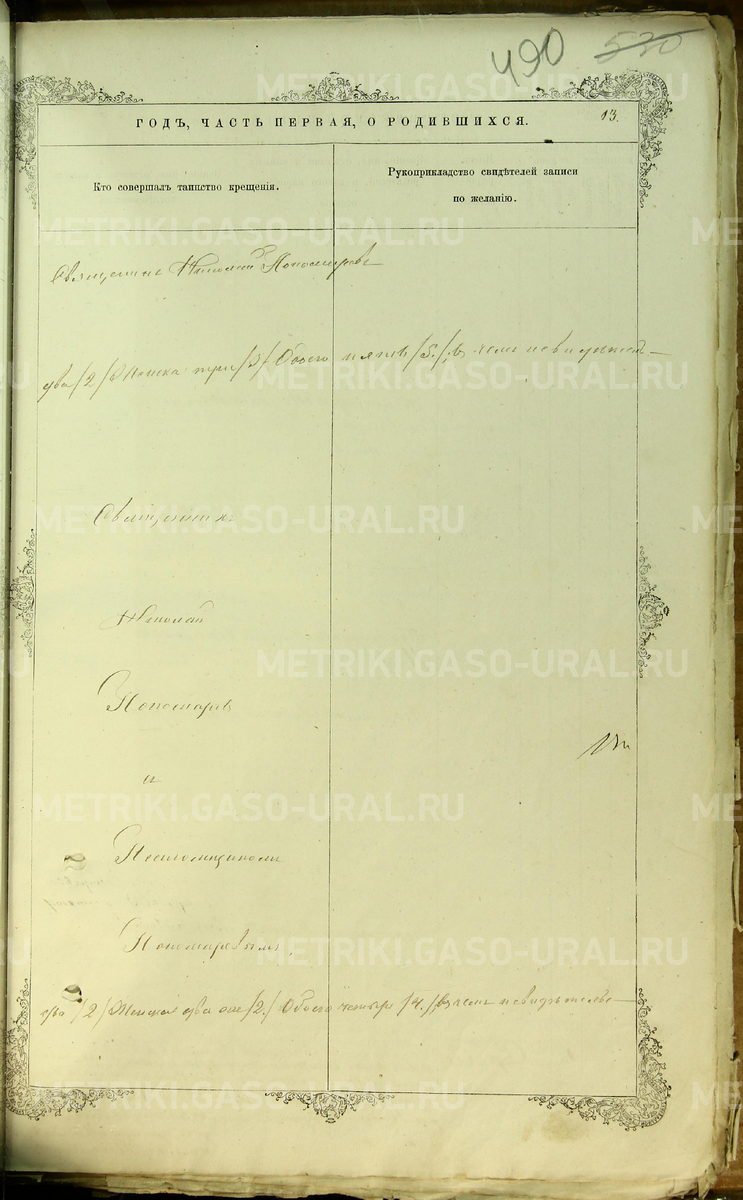 490 530
ГОДЪ, ЧАСТЬ ПЕРВАЯ, О РОДИВШИХСЯ. 13.
Кто совершалъ таинство крещенія.
Рукоприкладство свидѣтелей записи
по желанію.
Священникъ Николай Пономаревъ
два /2/ Женска три /3/ Обоего пять /5./, въ чемъ и свидѣтель—
Священникъ
Николай
Пономаревъ
и
Пономаревымъ.
два /2/ Женска два /2./ Обоего четыре /4./ въ чемъ и свидѣтельс—
METRIKI.GASO-URAL.RU